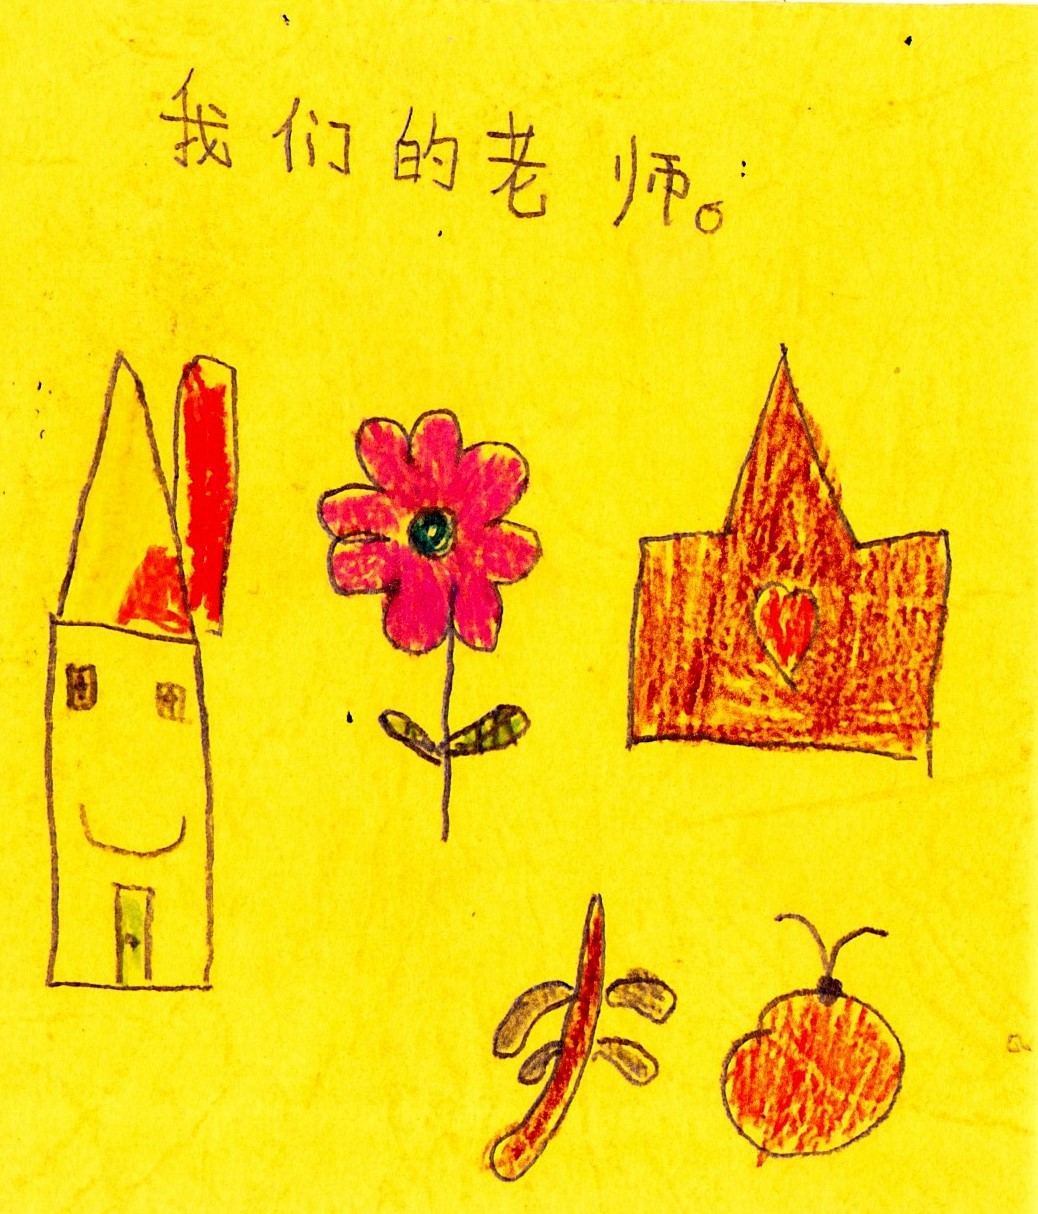 我们的老师。